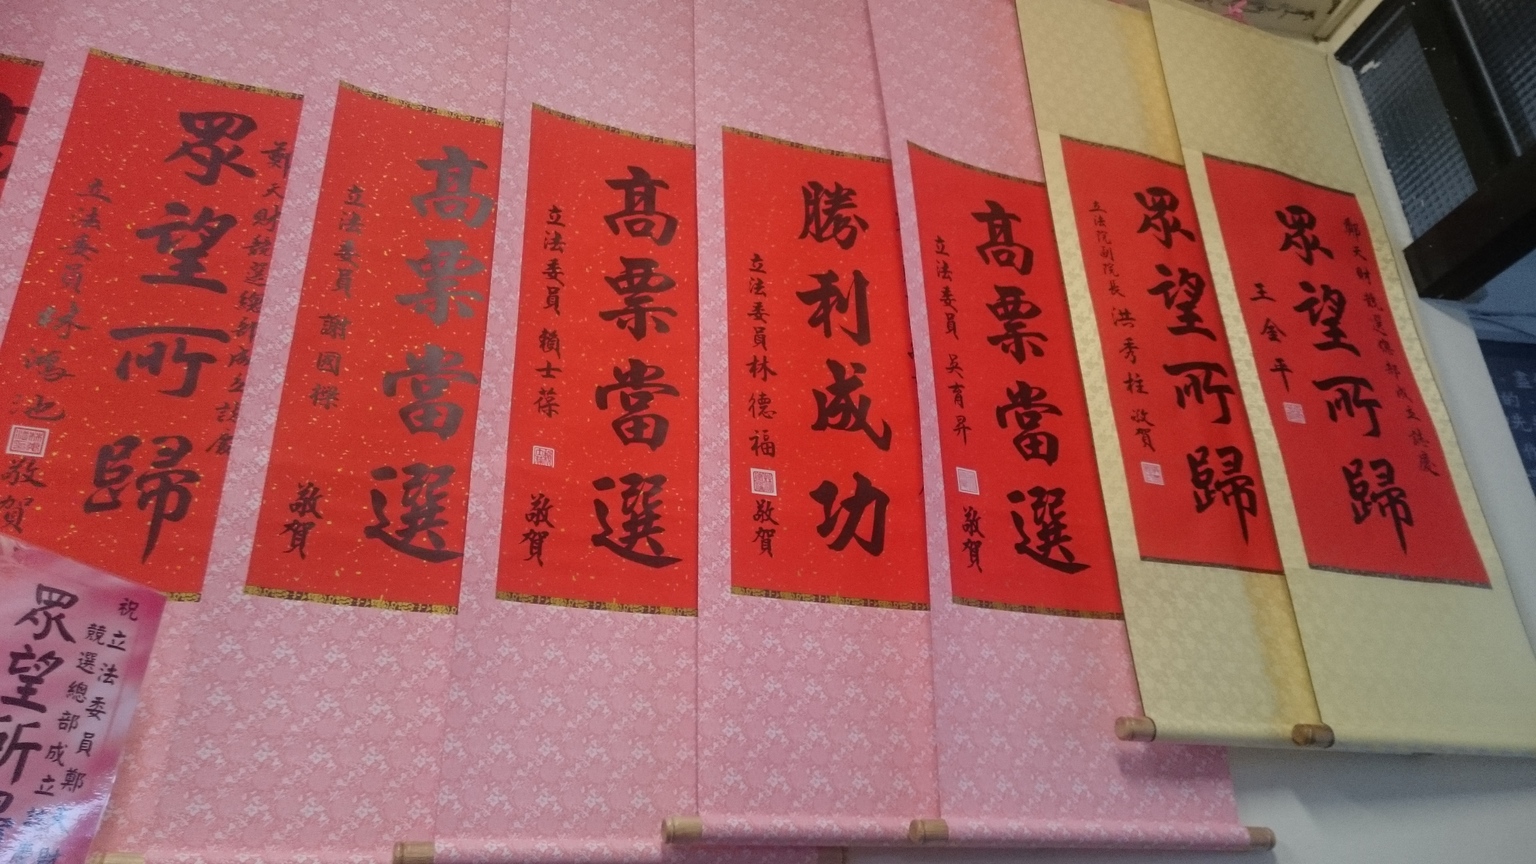 眾望所歸
鄭天財競選總部成立誌慶
王金平
眾望所歸
立法院副院長 洪秀柱 敬賀
高票當選
立法委員 吳育昇 敬賀
勝利成功
立法委員林德福 敬賀
高票當選
立法委員 賴士葆 敬賀
高票當選
立法委員 謝國樑 敬賀
鄭天財競選總部成立誌慶
眾望所歸
立法委員林鴻池 敬賀
祝立法委員鄭天財
競選總部成立
眾望所歸